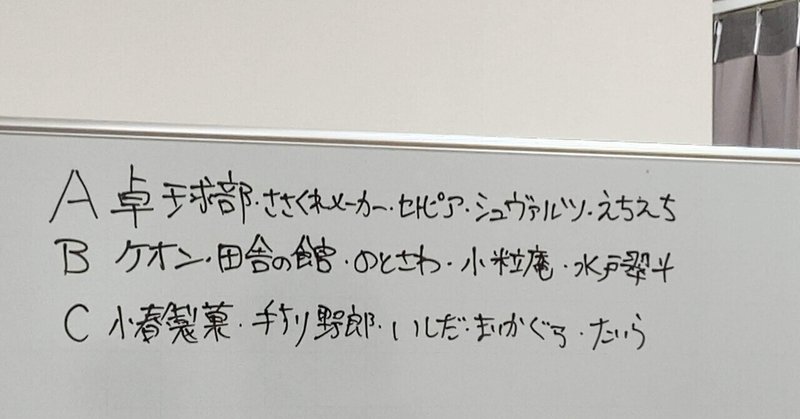 A 卓球部・ささくれメーカー・セトピア・シュヴァルツ・えちえち
B ケオン・田舎の館・のとさわ・小粒庵・水戸翠斗
C 小春製菓・手ちり野郎・いしだ・まいかぐら・たいら